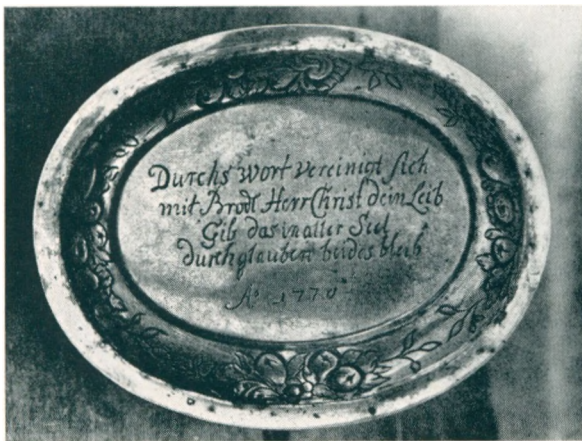 Durchs wort vereinigt sich
mit Brodt Herr Christ dein Leib
Gib das in aller Seel
durch glauben beides bleib
Aº 1770